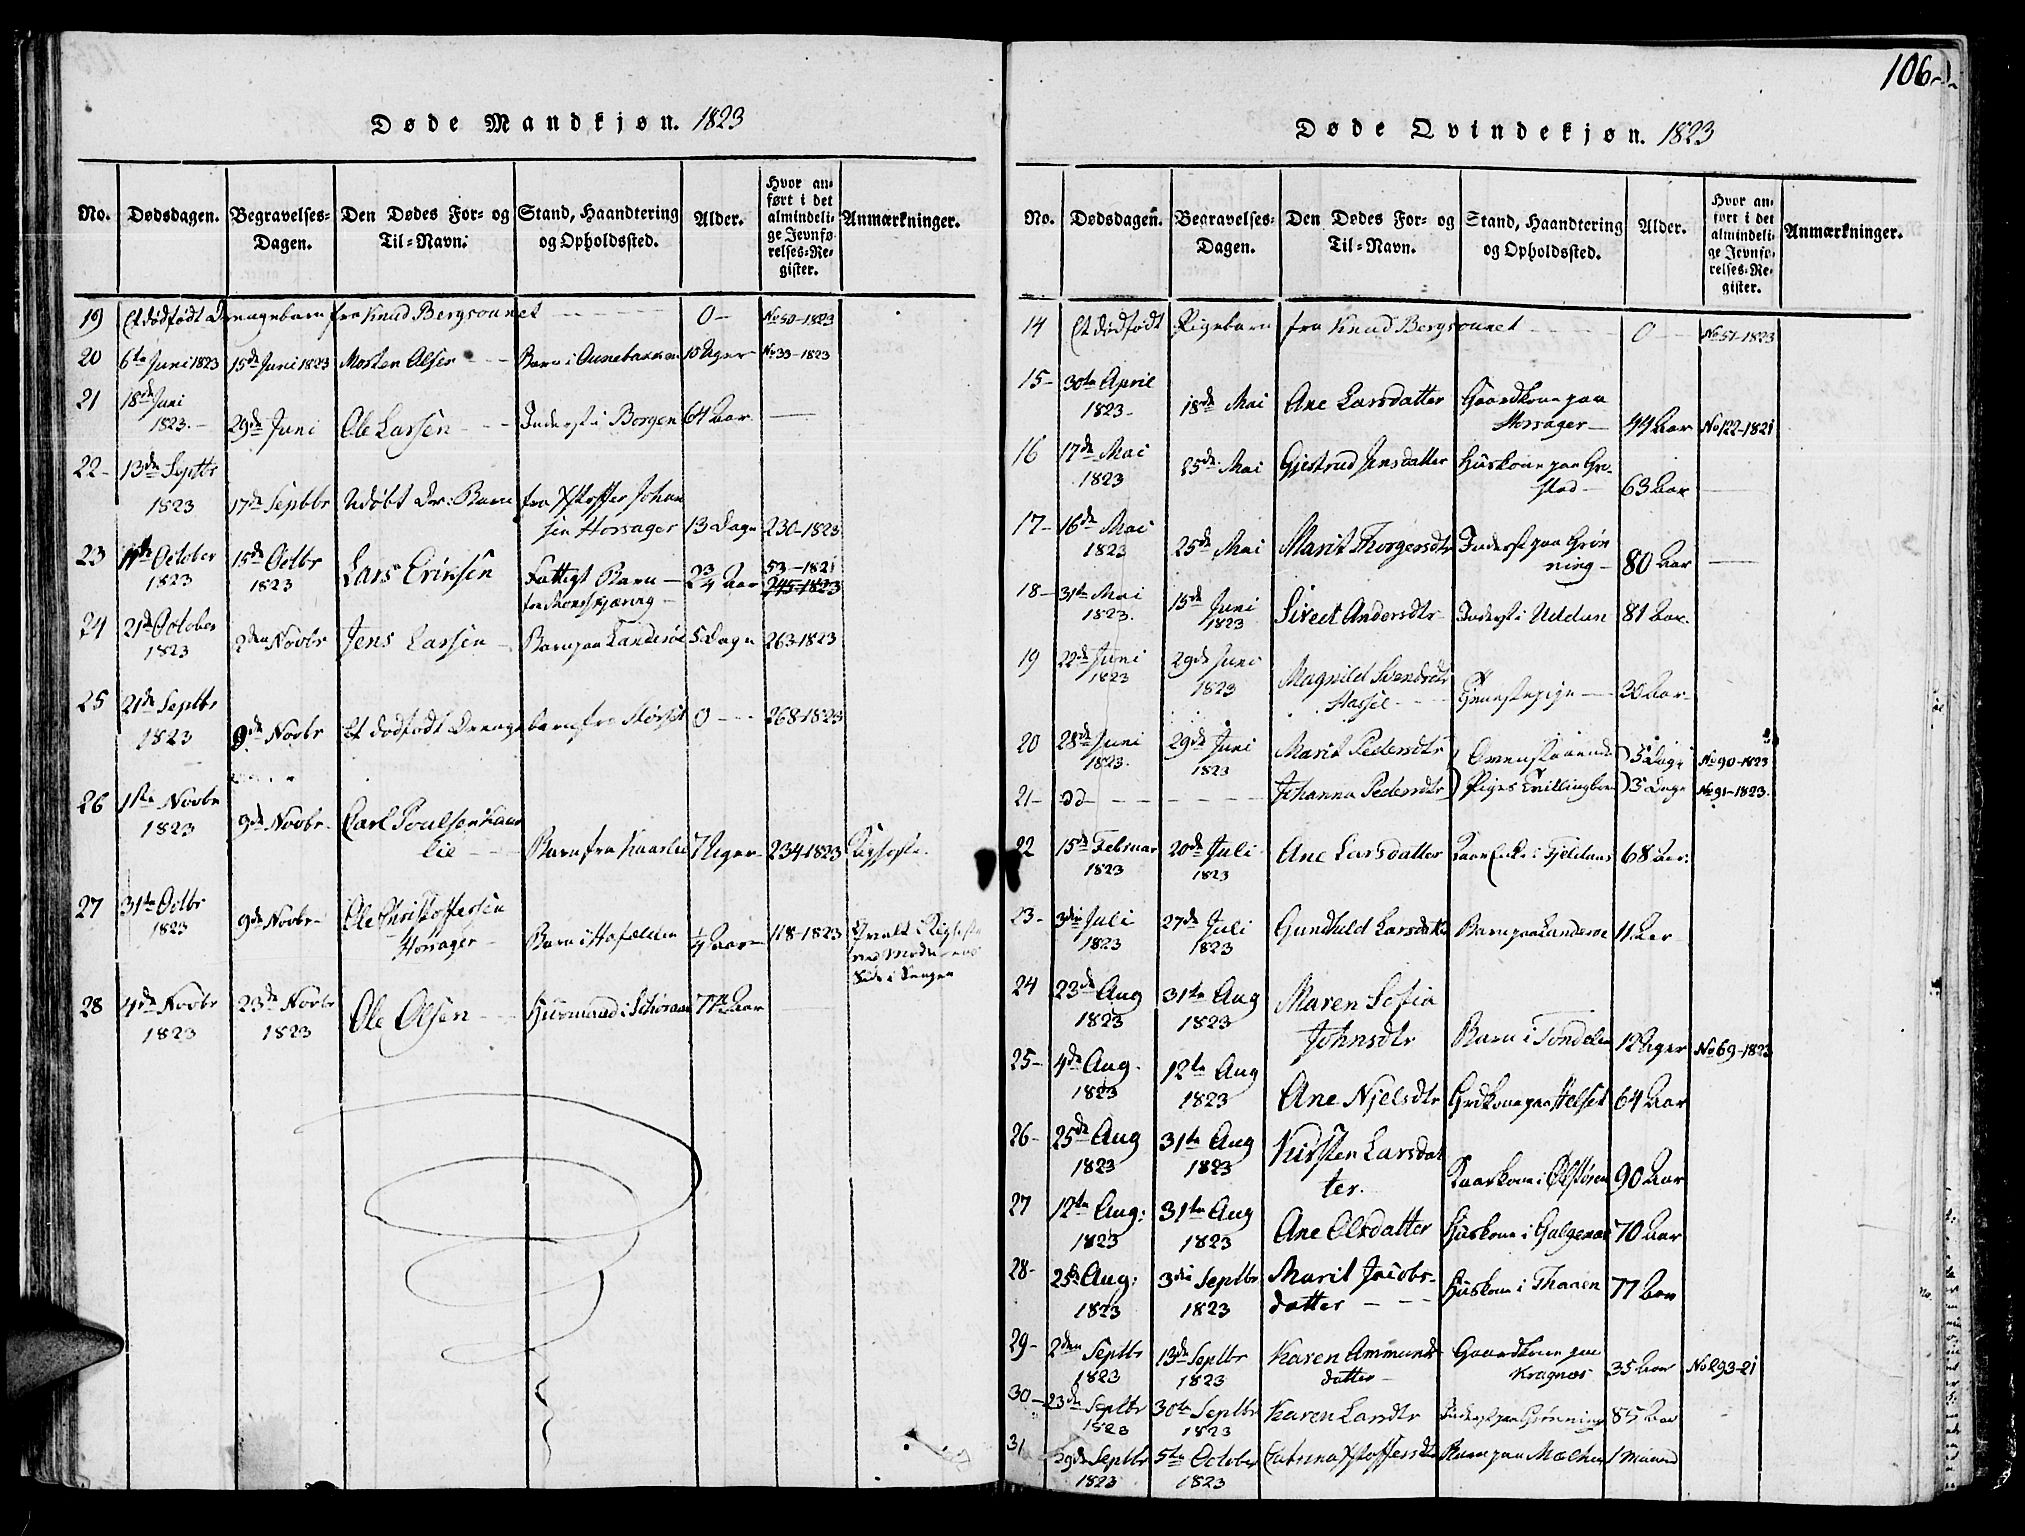 106
Døde Mandkjøn. 1823
No. Dødsdagen. Begravelses-Dagen. Den Dødes For- og Til-Navn. Stand, Haandtering og Opholdssted. Alder. Hvor anført i det almindelige Jevnførelses-Register. Anmærkninger.
19 Et dødfødt Drengebarn fra Knud Bergsaunet 0 No 50-1823
20 6te Juni 1823 15de Juni 1823 Morten Olsen Barn i 10 Uger No 33-1823
21 18de Juni
1823. 29de Juni Ole Larsen Inderst i Borgen 64 Aar
22 13de Septbr
1823 17de Septbr Udøbt Dr: Barn fra Xstoffer Johan
sen Horsager 13 Dage 230-1823
23 11te October 15de Octbr Lars Eriksen Fattigt Barn 2 3/4 Aar 53-1821
1823 1823 245-1823
24 21de October
1823 2den Novbr Jens Larsen Barn paa Landerøe 5 Dage 263-1823
25 21de Septbr
1823 9de Novbr Et dødfødt Drenge barn fra Størset 0 268-1823
26 1ste Novbr
1823 9de Novbr Carl Poulsen Kaar
lie Barn fra Kaarlie 7 Uger 234-1823 Kighoste.
27 31te Octbr
1823 9de Novbr Ole Christoffersen
Horsager Barn i 1/4 Aar 118-1823 Qvalt
ved Moderens
Side i Sengen
28 4de Novbr 23de Novbr Ole Olsen Huusmand i 77 Aar
1823 1823
Døde Qvindekjøn. 1823
No. Dødsdagen. Begravelses-Dagen. Den Dødes For- og Til-Navn. Stand, Haandtering og Opholdssted. Alder. Hvor anført i det almindelige Jevnførelses-Register. Anmærkninger.
14 Et dødfødt Pigebarn fra Knud Bergsaunet 0 No 51-1823
15 30te April
1823 18de Mai Ane Larsdatter Gaardkone paa
Horsager 44 Aar No 122-1821
16 17de Mai
1823 25de Mai Gjertrud Jensdatter Huskone paa Gra-
stad 63 Aar
17 16de Mai
1823 25de Mai Marit Thorgersdtr Inderst paa Grøn
ning 80 Aar
18 31te Mai 15de Juni
1823. 1823 Siret Andersdtr Inderst i Uddun 81 Aar.
19 22de Juni 29de Juni Magnild Svendsdtr
1823 1823 Hassel Tjenestepige 30 Aar
20 28de Juni 29de Juni Marit Pedersdtr Omenstaaende 5 Dage No 90-1823
1823. 1823
21 dd Johanna Pedersdtr Piges Tvillingbørn 5 Dage No 91-1823.
22 15de Februar 20de Juli Ane Larsdatter Kaar Enke i 68 Aar:
1823 1823
23 3die Juli 27de Juli Gunhild Larsdatter Barn paa Landerøe 11 Aar
1823 1823
24 23de Aug 31te Aug Maren Sofia
1823 1823 Johnsdtr Barn i Tondelen 12 Uger No 69-1823
25 4de Aug. 12te Aug
1823 1823 Ane Njelsdtr Grdkone paa Helset 64 Aar
26 25de Aug 31te Aug Kirsten Larsdat
1823 1823 ter. Kaarkone i Ølstøren 90 Aar
27 12te Aug: 31te Aug Ane Olsdatter Huskone i Galgenæs 70 Aar
1823 1823
28 25de Aug: 3die Septbr Marit Jacobs-
1823 1823 datter Huskone i Thaaen 77 Aar
29 2den Septbr 13de Septbr Karen Ammunds Gaardkone paa
1823 1823 datter Kragnæs 35 Aar No 293-21
30 23de Septbr 30te Septbr Karen Larsdtr Inderst paa Grønning 85 Aar
1823 1823
31 29de Septbr 5te October Catrina Xstoffersdtr Barn paa Mælhus 1 Maaned
1823 1823